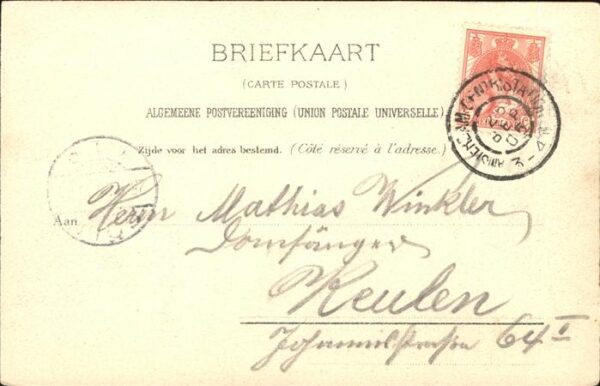 BRIEFKAART
(CARTE POSTALE)
ALGEMEENE POSTVEREENIGING (UNION POSTALE UNIVERSELLE)
Zijde voor het adres bestemd. (Côté réservé à l'adresse.)
Aan Herrn Mathias Winkler,
Domsänger
Keulen
Johannisstrasse 64 I